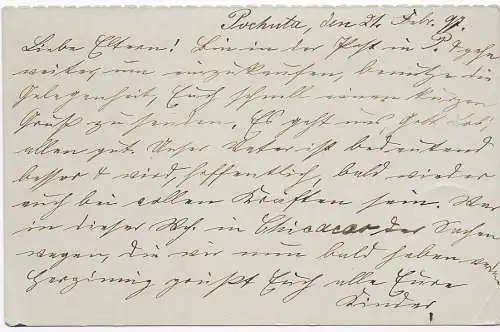 Pochuta, den 21. Febr. 97.
Liebe Eltern! Bin in der Post in P. & gehe
weiter, um einzukaufen, benutze die
Gelegenheit, Euch schnell einen kurzen
Gruß zu senden. Es geht uns Gott Lob,
allen gut. Unser Vater ist bedeutend
besser & wird, hoffentlich, bald wieder
auch bei vollen Kräften sein. War
in dieser Wh. in Chicacao der Sachen
wegen, die wir nun bald haben werden
Herzinnig grüßt Euch alle Eure
Kinder!